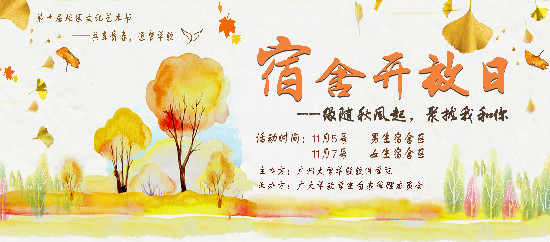 第十届社区文化艺术节
——共享青春，逐梦华软
宿舍开放日
——级随秋风起，聚拢我和你
活动时间：11月5号 男生宿舍区
11月7号 女生宿舍区
主办方：广州大学华软软件学院
承办方：广大华软学生自我管理委员会